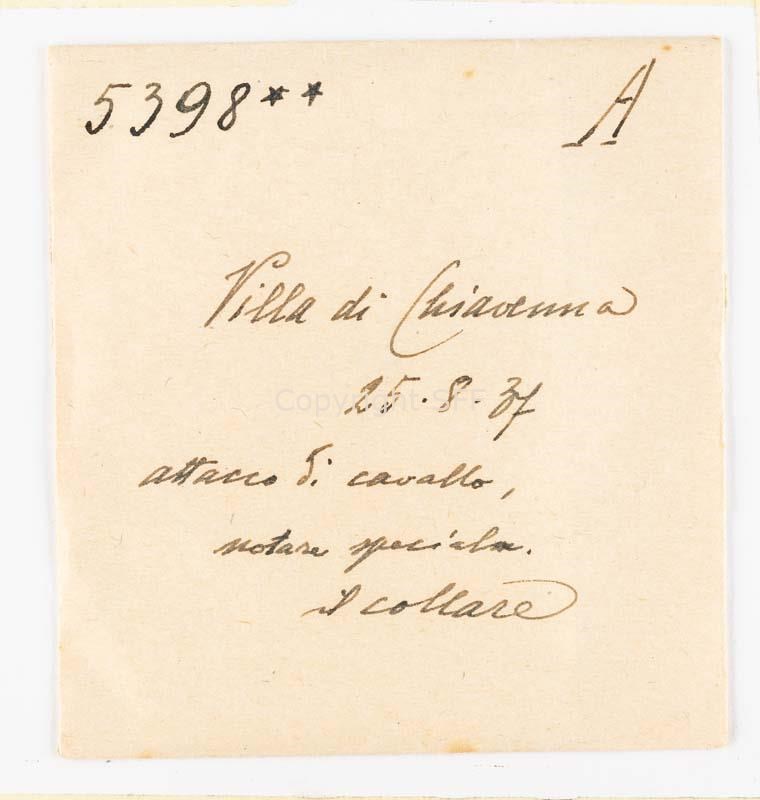 5398** A
Villa di Chiavenna
25.8.37
Copyright SFF
attacco di cavallo,
notare specialm.
il collare